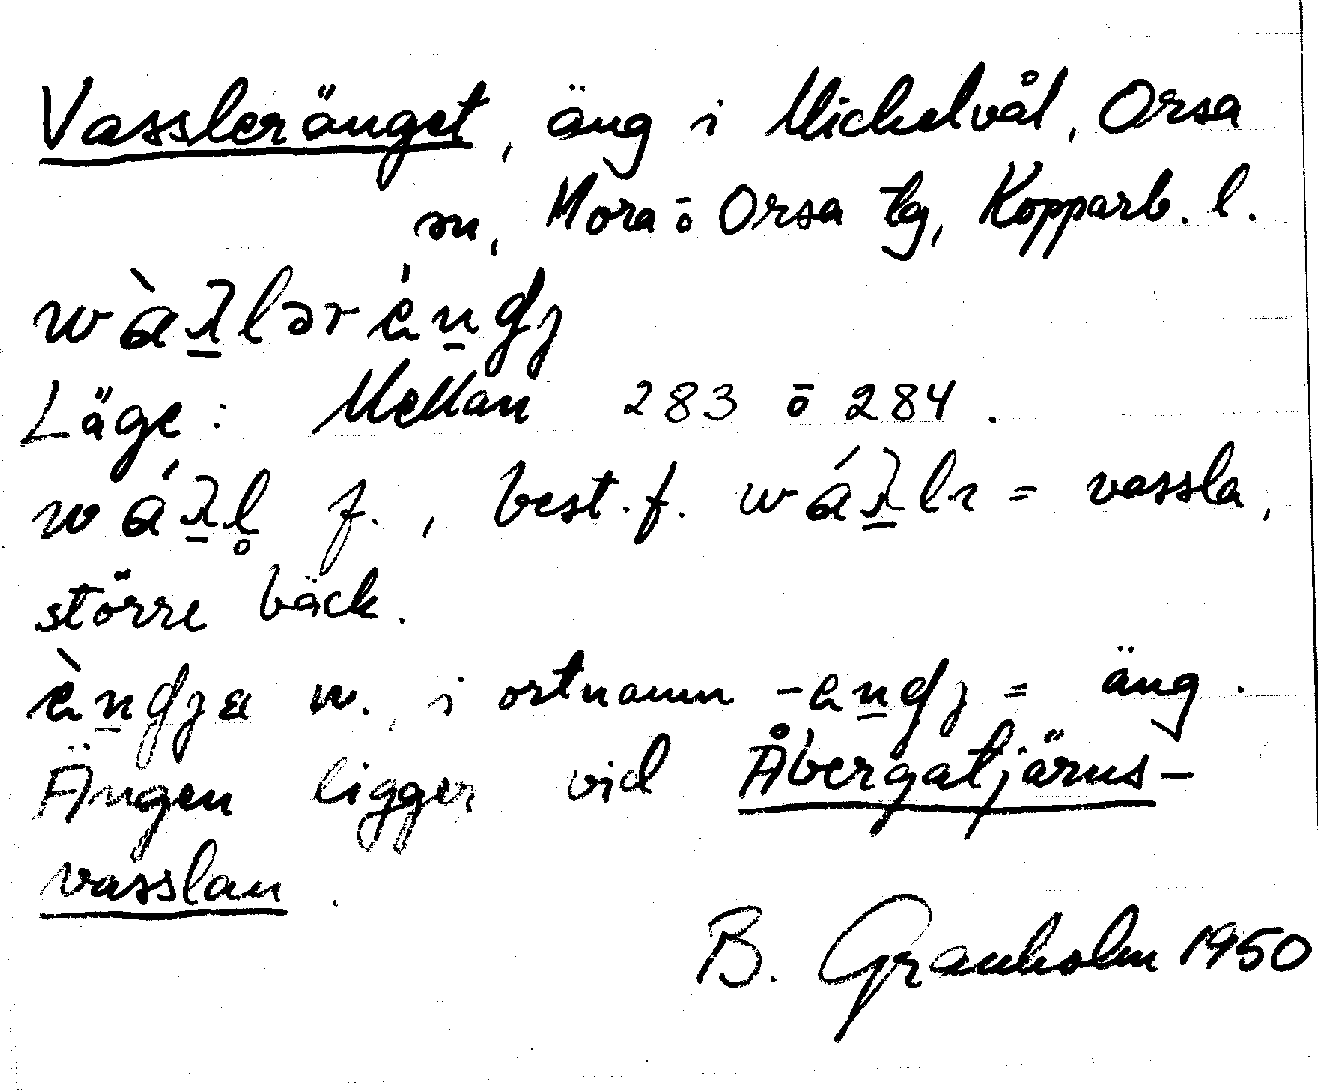 Vassleränget, äng i Mickelvål, Orsa
sn, Mora o Orsa tg, Kopparb. l.
Läge: Mellan 283 o 284.
f., best. f. = vassla,
större bäck.
i ortnamn = äng.
Ängen ligger vid Åbergatjärns-
vasslan.
B. Granholm 1950